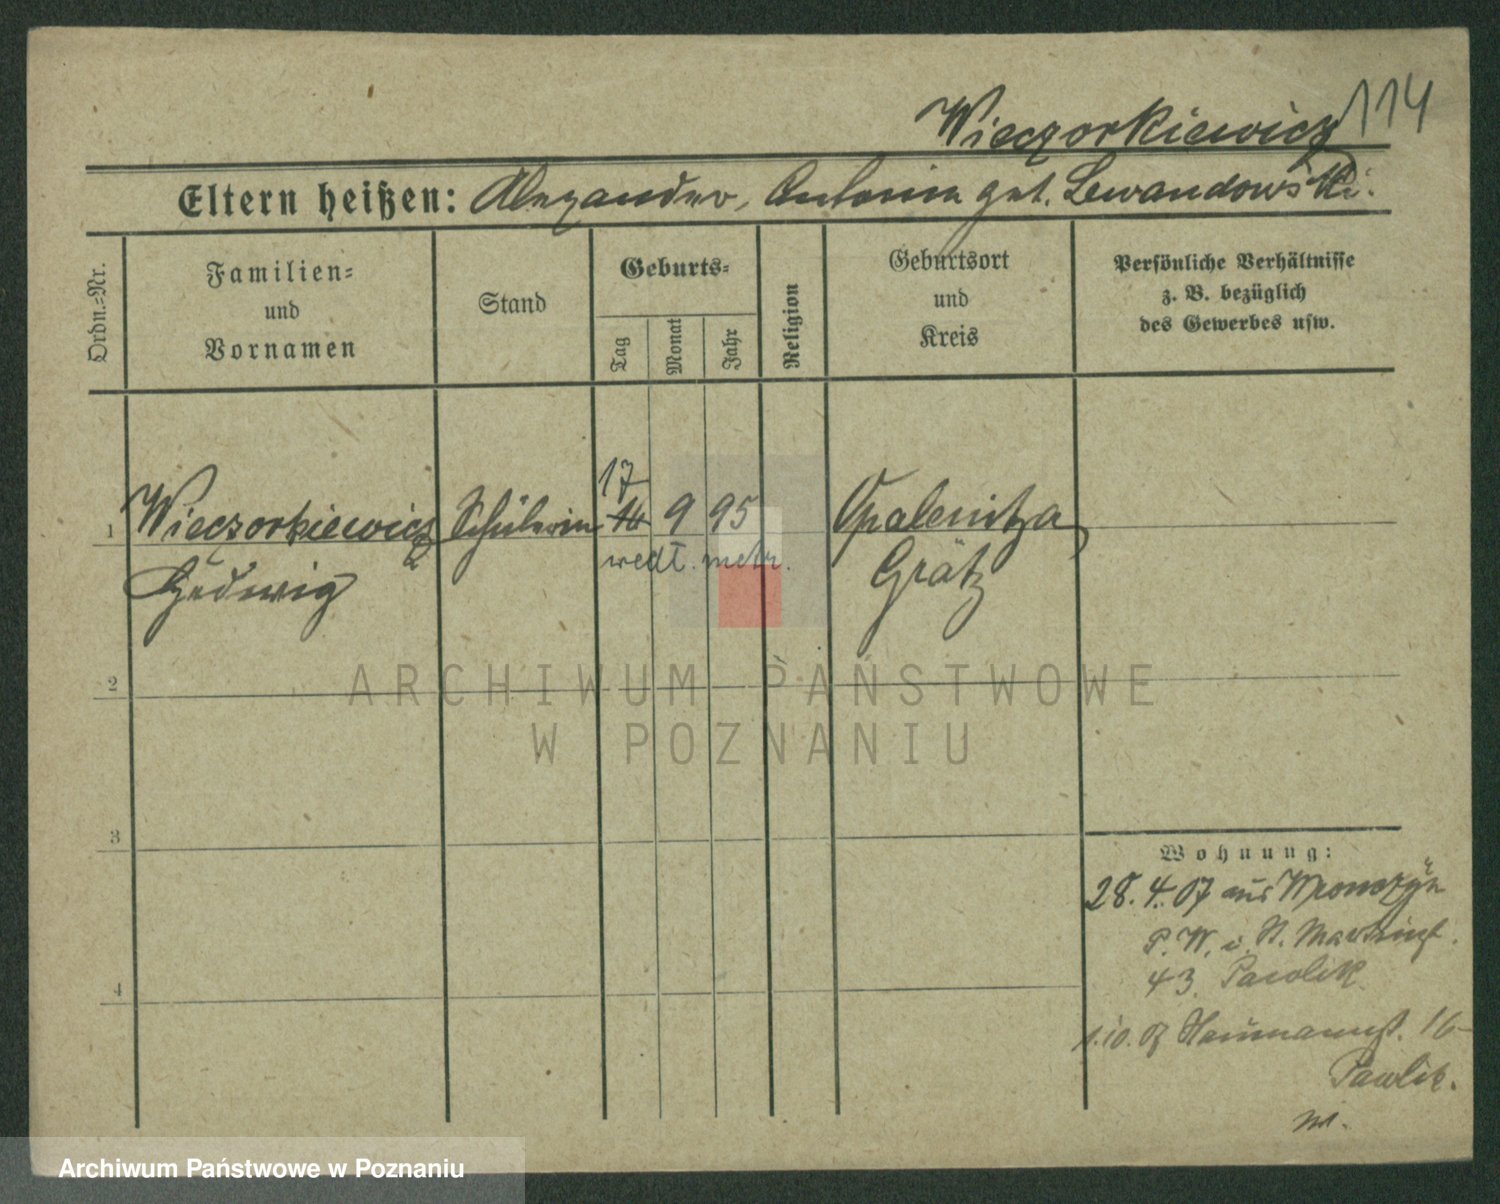 114
Wieczorkiewicz
Eltern heißen: Alexander, Antonina geb. Lewandowski.
Ordn.=Nr.
Familien=
und
Vornamen
Stand
Geburts=
Tag
Monat
Jahr
Religion
Geburtsort
und
Kreis
Persönliche Verhältnisse
z. B. bezüglich
des Gewerbes usw.
17
1 Wieczorkiewicz Schülerin 16 9 95 Opalenitza
wedł. metr.
Hedwig Grätz
2
ARCHIWUM PAŃSTWOWE
W POZNANIU
3
Wohnung:
28. 4. 07 aus Wronczyn
P. W. i. St. Martinst.
4
43. Pawlik.
1.10.07 Naumannst. 16
Pawlik.
Archiwum Państwowe w Poznaniu